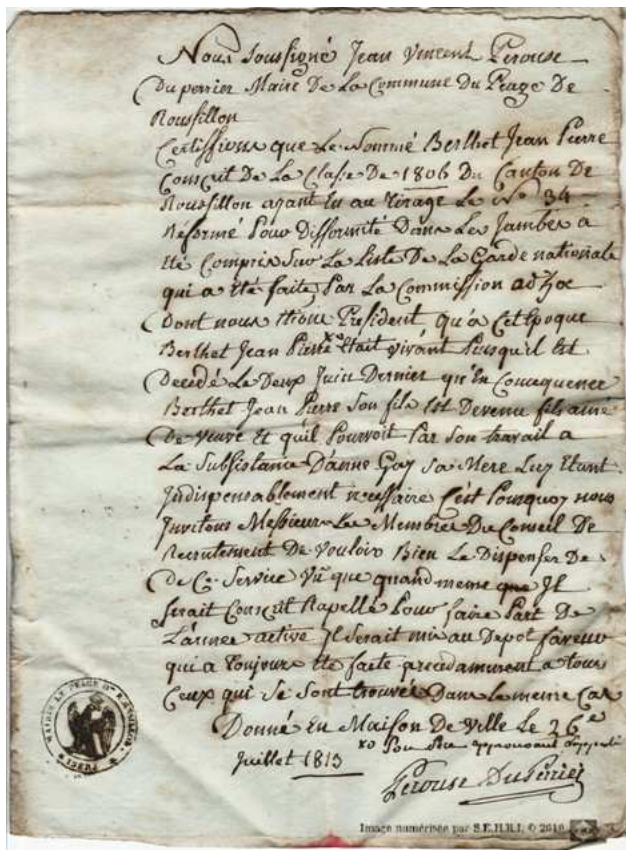 Nous soussigné Jean Vincent Perouse
Du perrier Maire De La Commune Du Peage De
Roussillon
Certiffions que Le Nommé Berthet Jean Pierre
Conscrit De La Classe De 1806 Du Canton De
Roussillon ayant Eu au Tirage Le No 34
Reformé Pour Difformité Dans Les Jambes a
Eté Compris Sur La Liste De La Garde nationale
qui a Eté faite, Par La Commission ad hoc
Dont nous Président qu'a Cet Epoque
Berthet Jean Pierre Etait vivant Puisqu'il Est
Decedé Le Deux Juin Dernier qu'En Concequence
Berthet Jean Pierre Son fils Est Devenu fils ainé
De veuve Et quil Pourvoit Par Son travail a
La Subsistance D'anne Guy Sa Mere Luy Etant
Indispensablement necessaire C'est Pourquoy nous
Invitons Messieurs Les Membres Du Conseil De
Recrutement De vouloir Bien Le Dispenser De
De Ce Service Vû que quand meme que Il
Serait Conscrit Rapellé Pour faire Part De
L'armée active Il Serait mis au Depot faveur
qui a toujours Eté faite precedamment a tous
Ceux qui Se Sont trouvés Dans Le meme Cas
Donné En Maison De Ville Le 26e
Juillet 1813
approuvant
Perouse DuPerrier
MAIRIE LE PEAGE
Image numérisée par S.E.H.R.I. © 2010